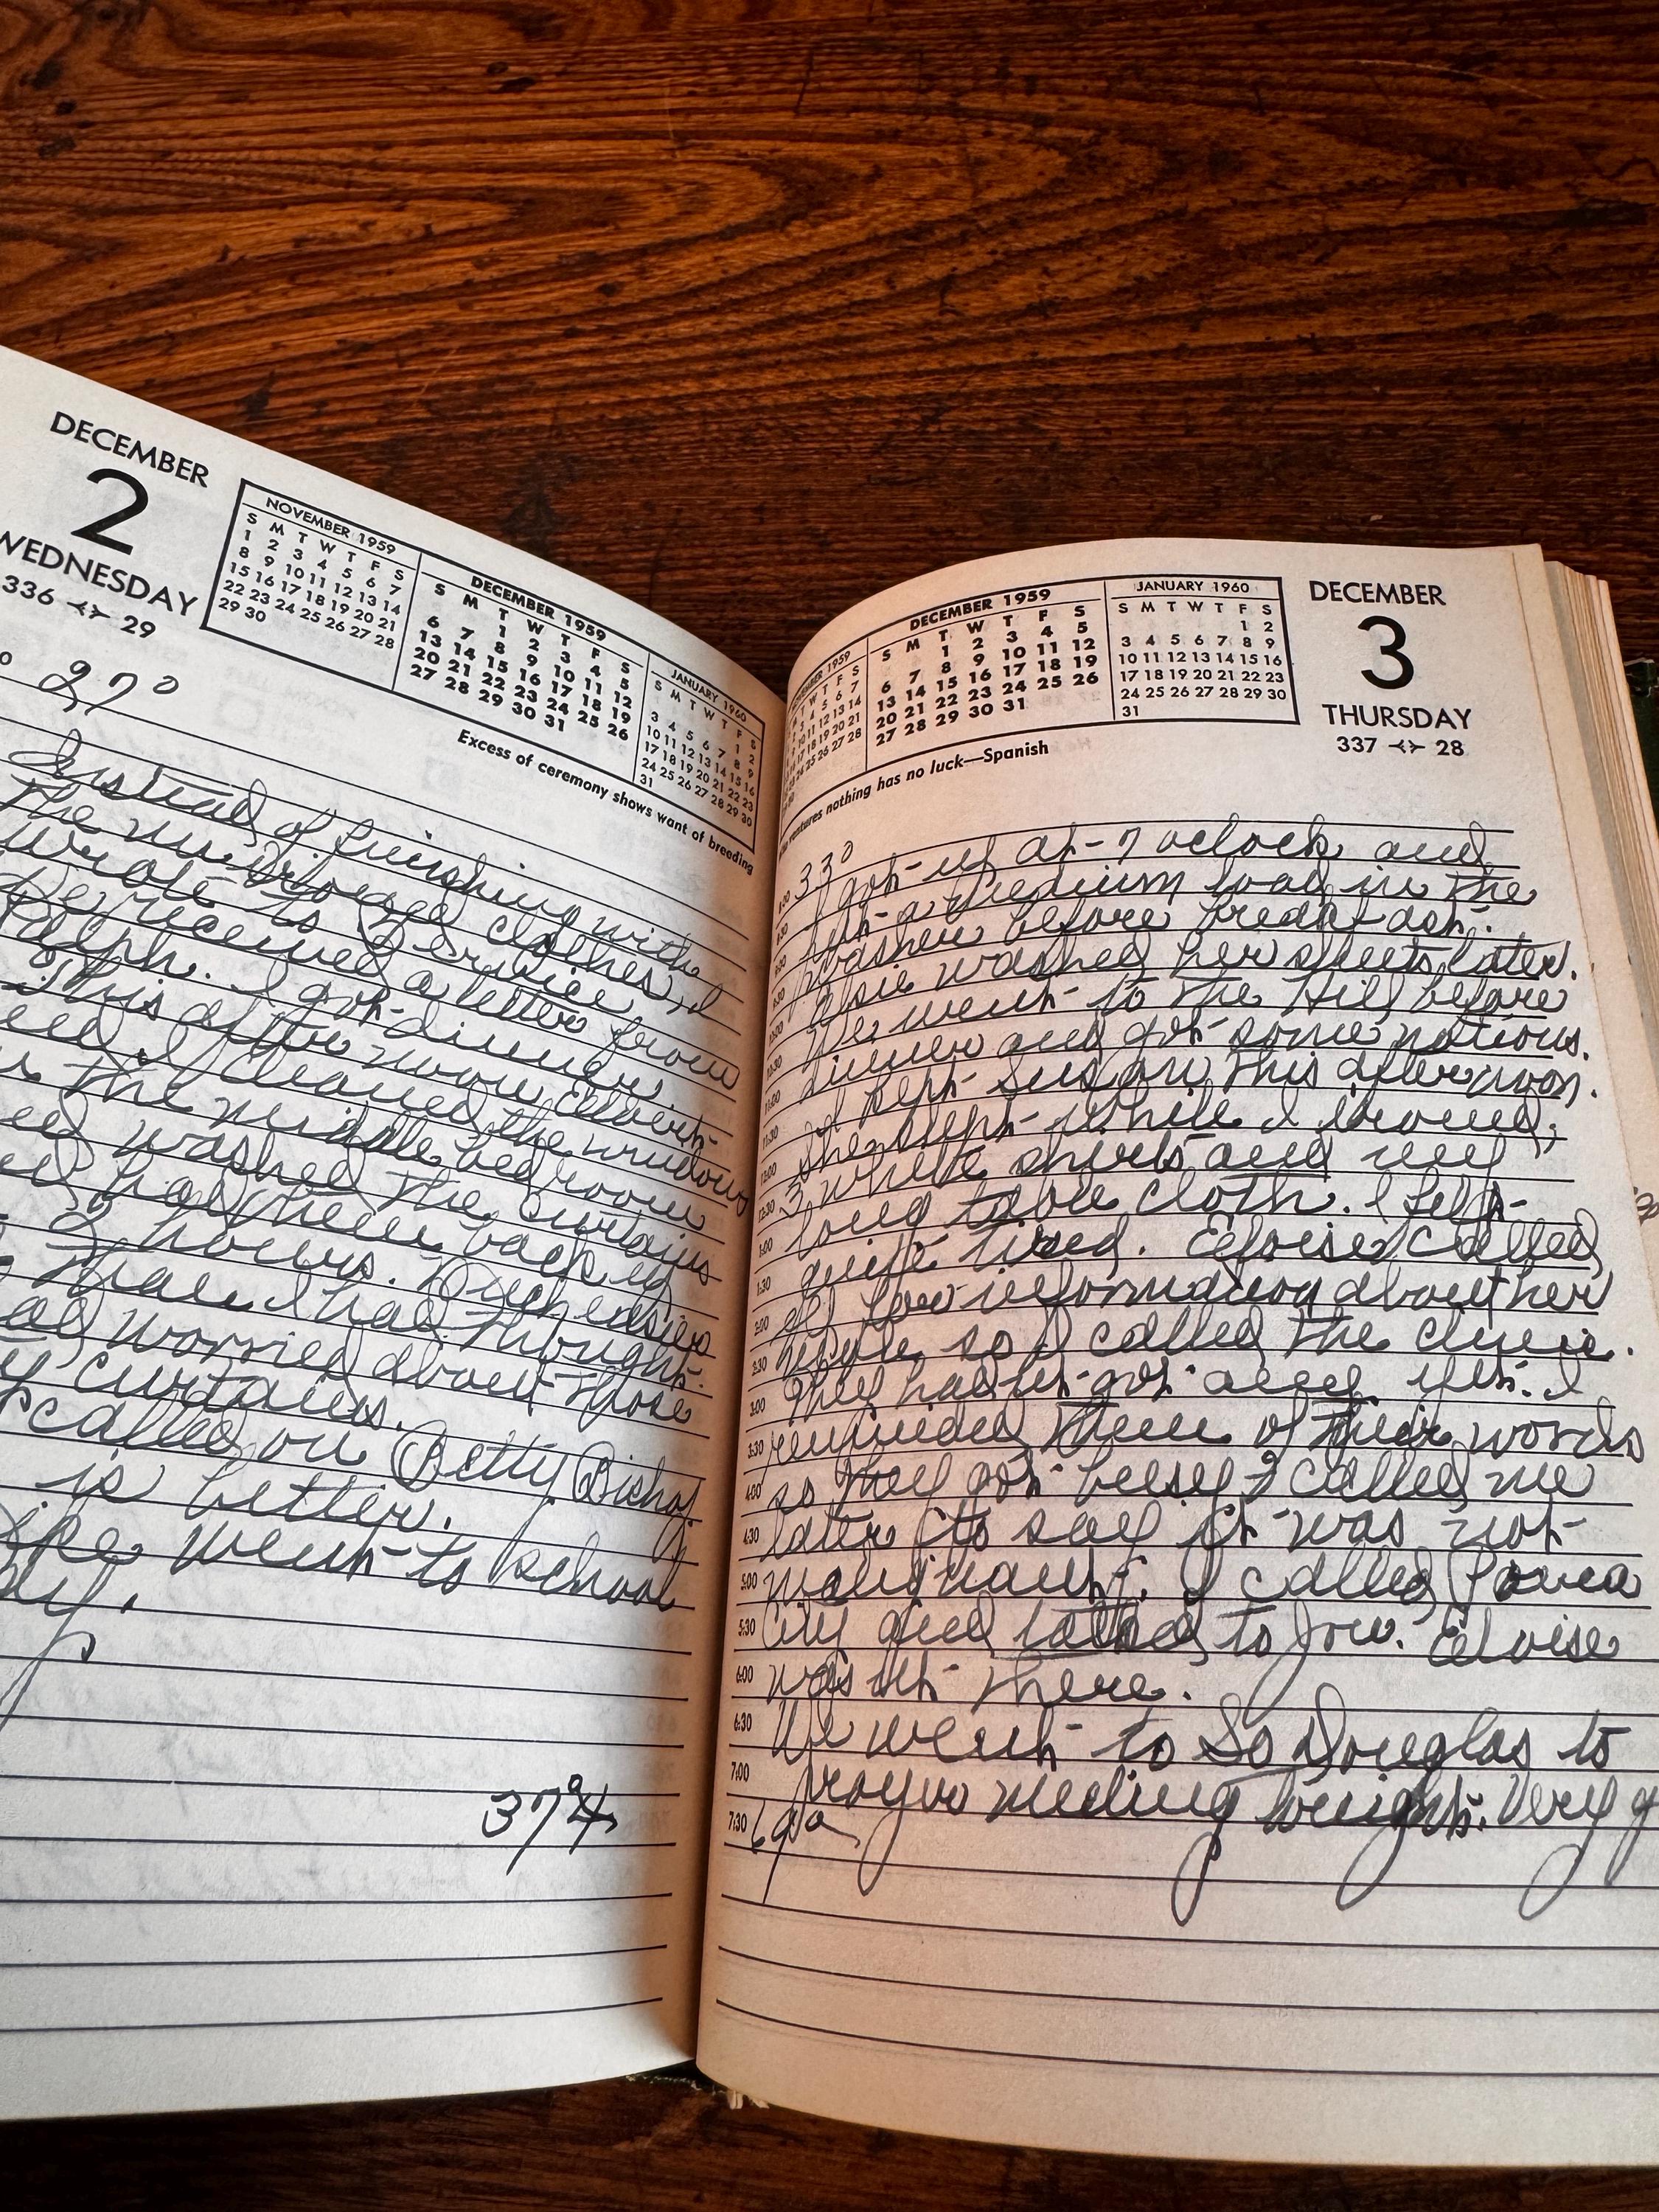 DECEMBER
2
WEDNESDAY
336 29
NOVEMBER 1959
S M T W T F S
1 2 3 4 5 6 7
8 9 10 11 12 13 14
15 16 17 18 19 20 21
22 23 24 25 26 27 28
29 30
DECEMBER 1959
S M T W T F S
1 2 3 4 5
6 7 8 9 10 11 12
13 14 15 16 17 18 19
20 21 22 23 24 25 26
27 28 29 30 31
JANUARY 1960
S M T W T F S
1 2
3 4 5 6 7 8 9
10 11 12 13 14 15 16
17 18 19 20 21 22 23
24 25 26 27 28 29 30
31
Excess of ceremony shows want of breeding
27°
Instead of finishing with
the clothes, I
wrote to Bernice
received a letter from
Ralph. I got dinner.
This after noon
I cleaned the windows
the middle bedroom
washed the curtains
had them back up
2 hours. Much easier
than I had thought.
worried about those
curtains.
called on Betty Bishop
is better.
went to school
37°
DECEMBER 1959
S M T W T F S
1 2 3 4 5
6 7 8 9 10 11 12
13 14 15 16 17 18 19
20 21 22 23 24 25 26
27 28 29 30 31
JANUARY 1960
S M T W T F S
1 2
3 4 5 6 7 8 9
10 11 12 13 14 15 16
17 18 19 20 21 22 23
24 25 26 27 28 29 30
31
DECEMBER
3
THURSDAY
337 28
ventures nothing has no luck—Spanish
33°
I got up at 7 oclock and
put a medium load in the
washer before breakfast.
Elsie washed her sheets later.
We went to the Hill before
dinner and got some notions.
I kept Susan this afternoon.
She slept while I ironed,
3 white shirts and my
long table cloth. I felt
quite tired. Eloise called
for information about her
so I called the clinic.
They hadn't got any yet. I
reminded them of their words
so they got busy & called me
later to say it was not
malignant. I called Ponca
City and talked to Jow. Eloise
wasn't there.
We went to So Douglas to
prayer meeting tonight. Very
8:00
8:30
9:00
9:30
10:00
10:30
11:00
11:30
12:00
12:30
1:00
1:30
2:00
2:30
3:00
3:30
4:00
4:30
5:00
5:30
6:00
6:30
7:00
7:30